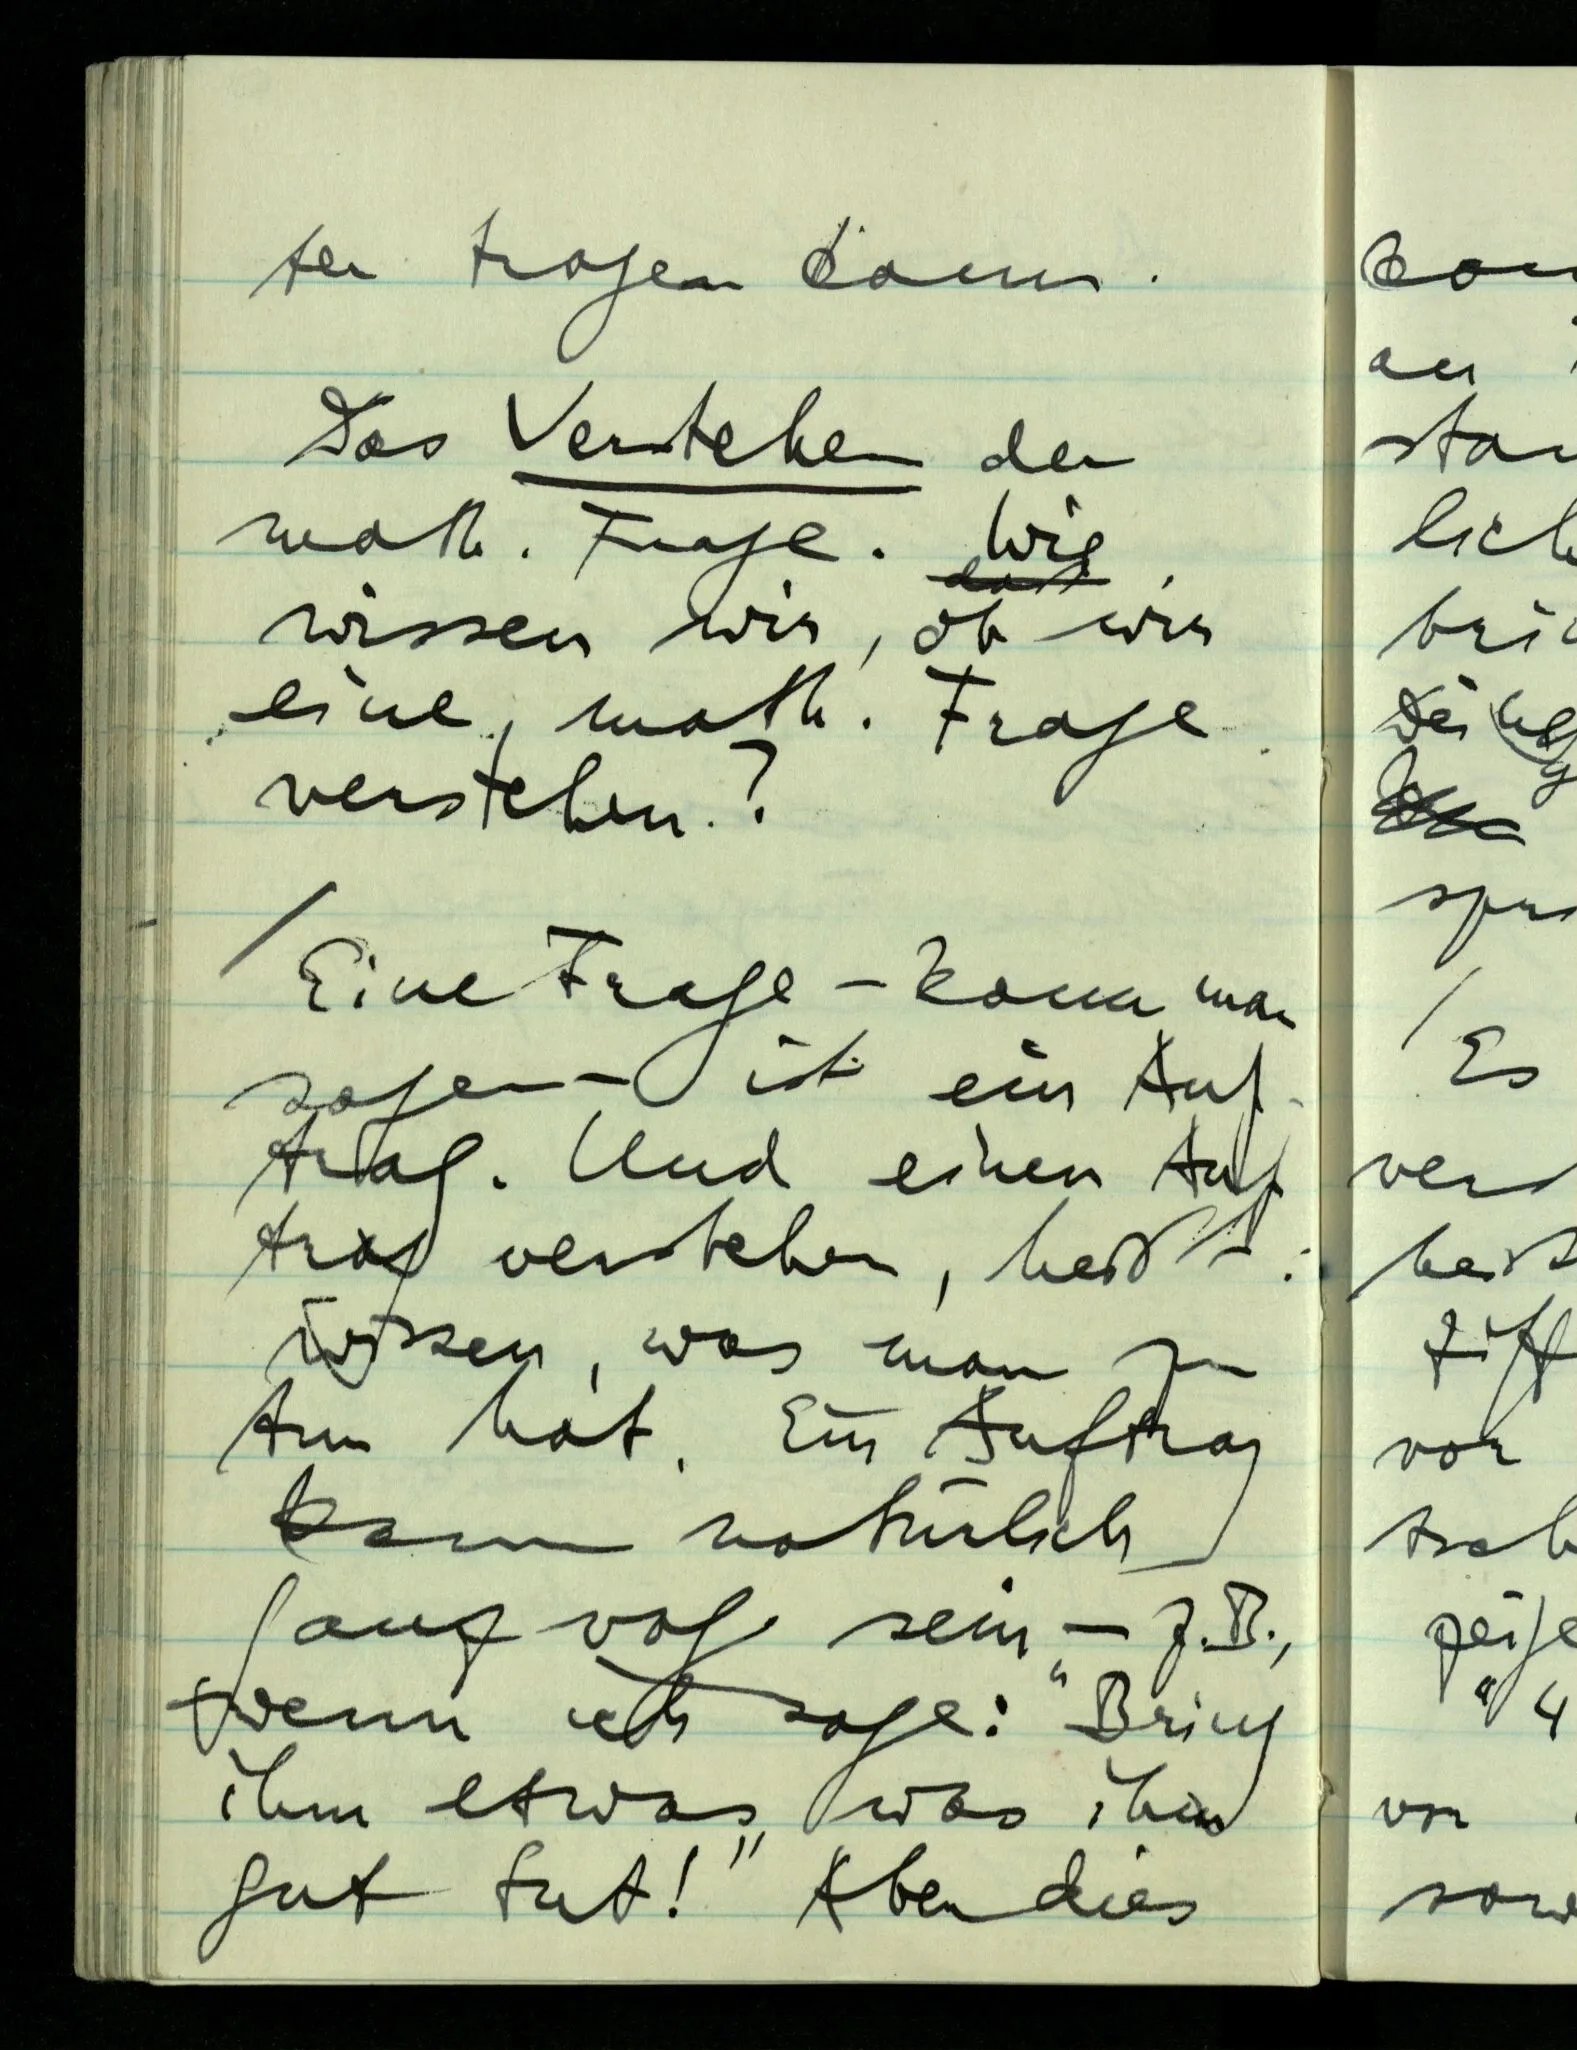 ten tragen kann.
Das Verstehen der
math. Frage. Wie
wissen wir, ob wir
eine math. Frage
verstehen?
/
Eine Frage – kann man
sagen – ist ein Auf-
trag. Und einen Auf
trag verstehen, heißt:
wissen, was man zu
tun hat. Ein Auftrag
kann natürlich
ganz vage sein – z.B.,
wenn ich sage: "Bring
ihm etwas, was ihm
gut tut!" Aber dies
an
/
Es
vor
"4
von